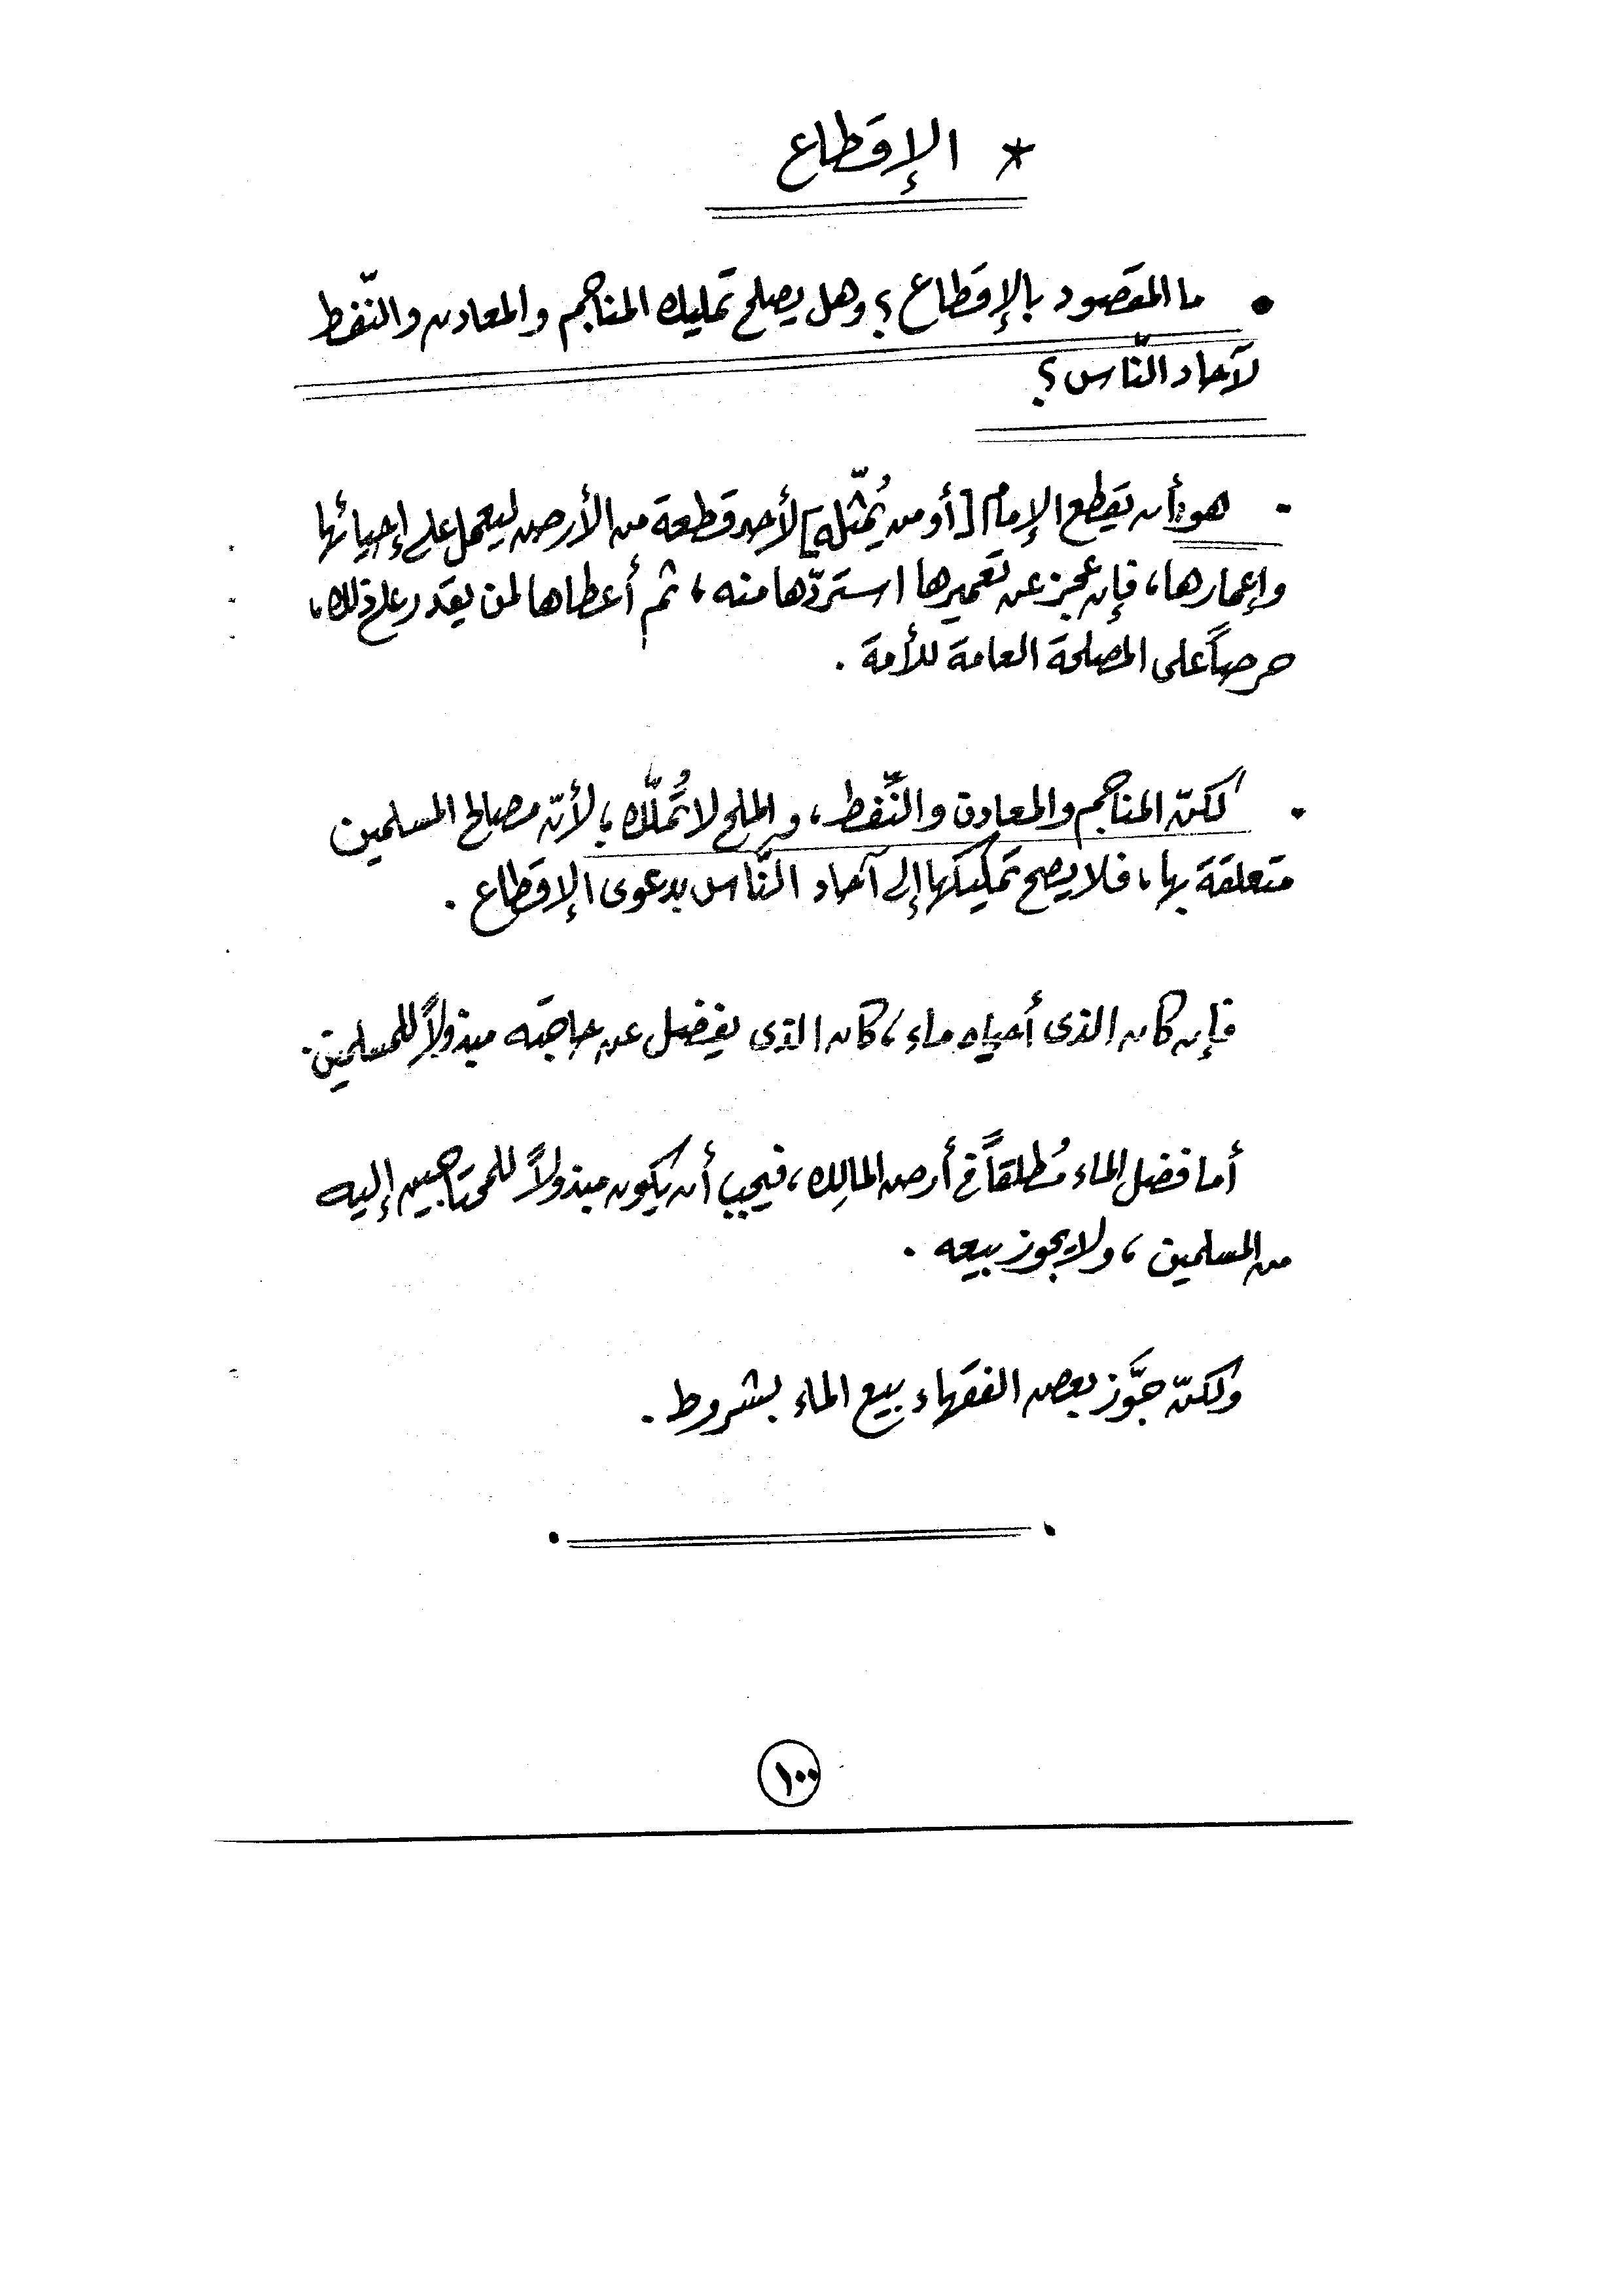 * الإقطاع
• ما المقصود بالإقطاع؟ وهل يصلح تمليك المناجم والمعادن والنّفط
لآحاد النّاس؟
- هو: أن يقطع الإمام [أو من يُمثّله] لأحد قطعة من الأرض ليعمل على إحيائها
وإعمارها، فإن عجز عن تعميرها استردّها منه، ثم أعطاها لمن يقدر على ذلك،
حرصاً على المصلحة العامة للأمة.
- لكنّ المناجم والمعادن والنّفط، والملح لا تُملّك؛ لأنّ مصالح المسلمين
متعلقة بها، فلا يصح تمكينها إلى آحاد النّاس بدعوى الإقطاع.
فإن كان الذى أحياه ماء، كان الذى يفضل عن حاجته مبذولاً للمسلمين.
أما فضل الماء مُطلقاً فى أرض المالِك، فيجب أن يكون مبذولاً للمحتاجين إليه
من المسلمين، ولا يجوز بيعه.
ولكنّ جوَّز بعض الفقهاء بيع الماء بشروط.
١٠٠